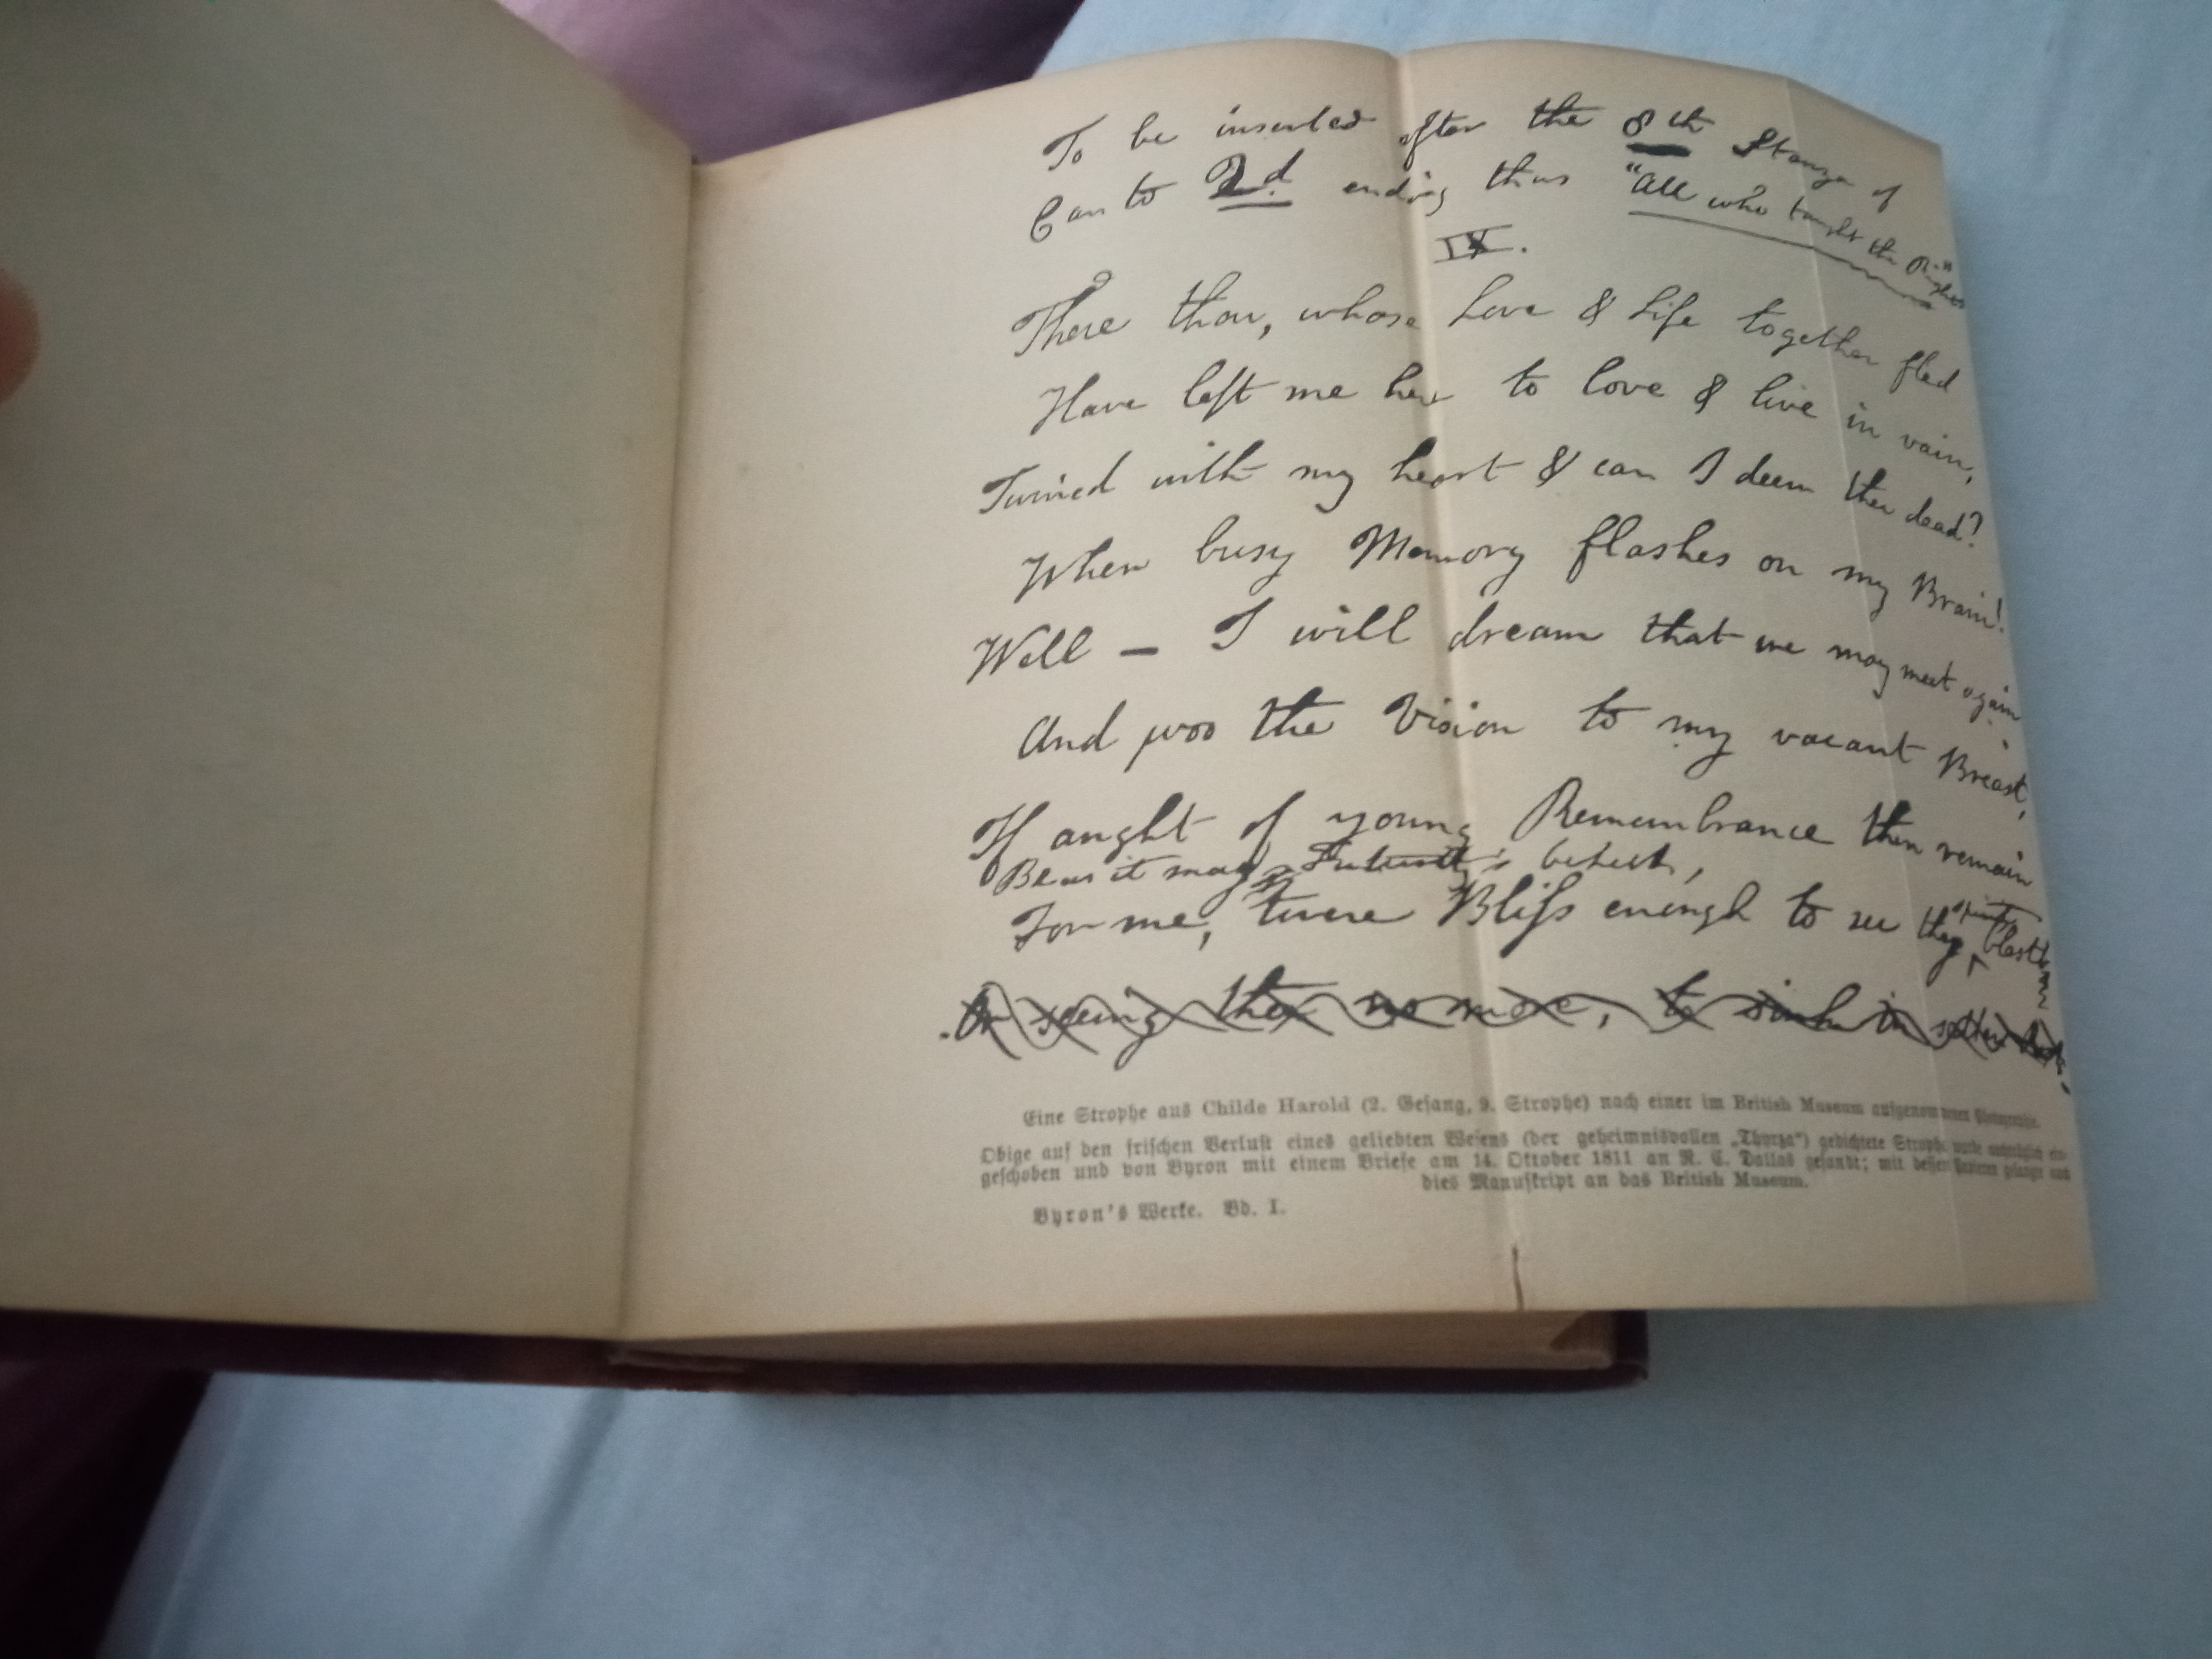 To be inserted after the 8th Stanza of
Canto 2d. ending thus "all who taught the Right"
IX.
There thou, whose Love & Life together fled
Have left me here to love & live in vain,
Twined with my heart & can I deem thee dead?
When busy Memory flashes on my Brain!
Well — I will dream that we may meet again
And woo the Vision to my vacant Breast,
If aught of young Remembrance then remain
Be as it may Futurity's behest,
For me, twere Bliss enough to see thy spirit blest
Or seeing thee no more, to sink in
Eine Strophe aus Childe Harold (2. Gesang, 9. Strophe) nach einer im British Museum aufgenommenen Photographie.
Obige auf den frischen Verlust eines geliebten Wesens (der geheimnisvollen „Thyrza“) gedichtete Strophe wurde nachträglich ein-
geschoben und von Byron mit einem Briefe am 14. Oktober 1811 an R. C. Dallas gesandt; mit dessen Papieren gelangte auch
dies Manuskript an das British Museum.
Byron's Werke. Bd. I.